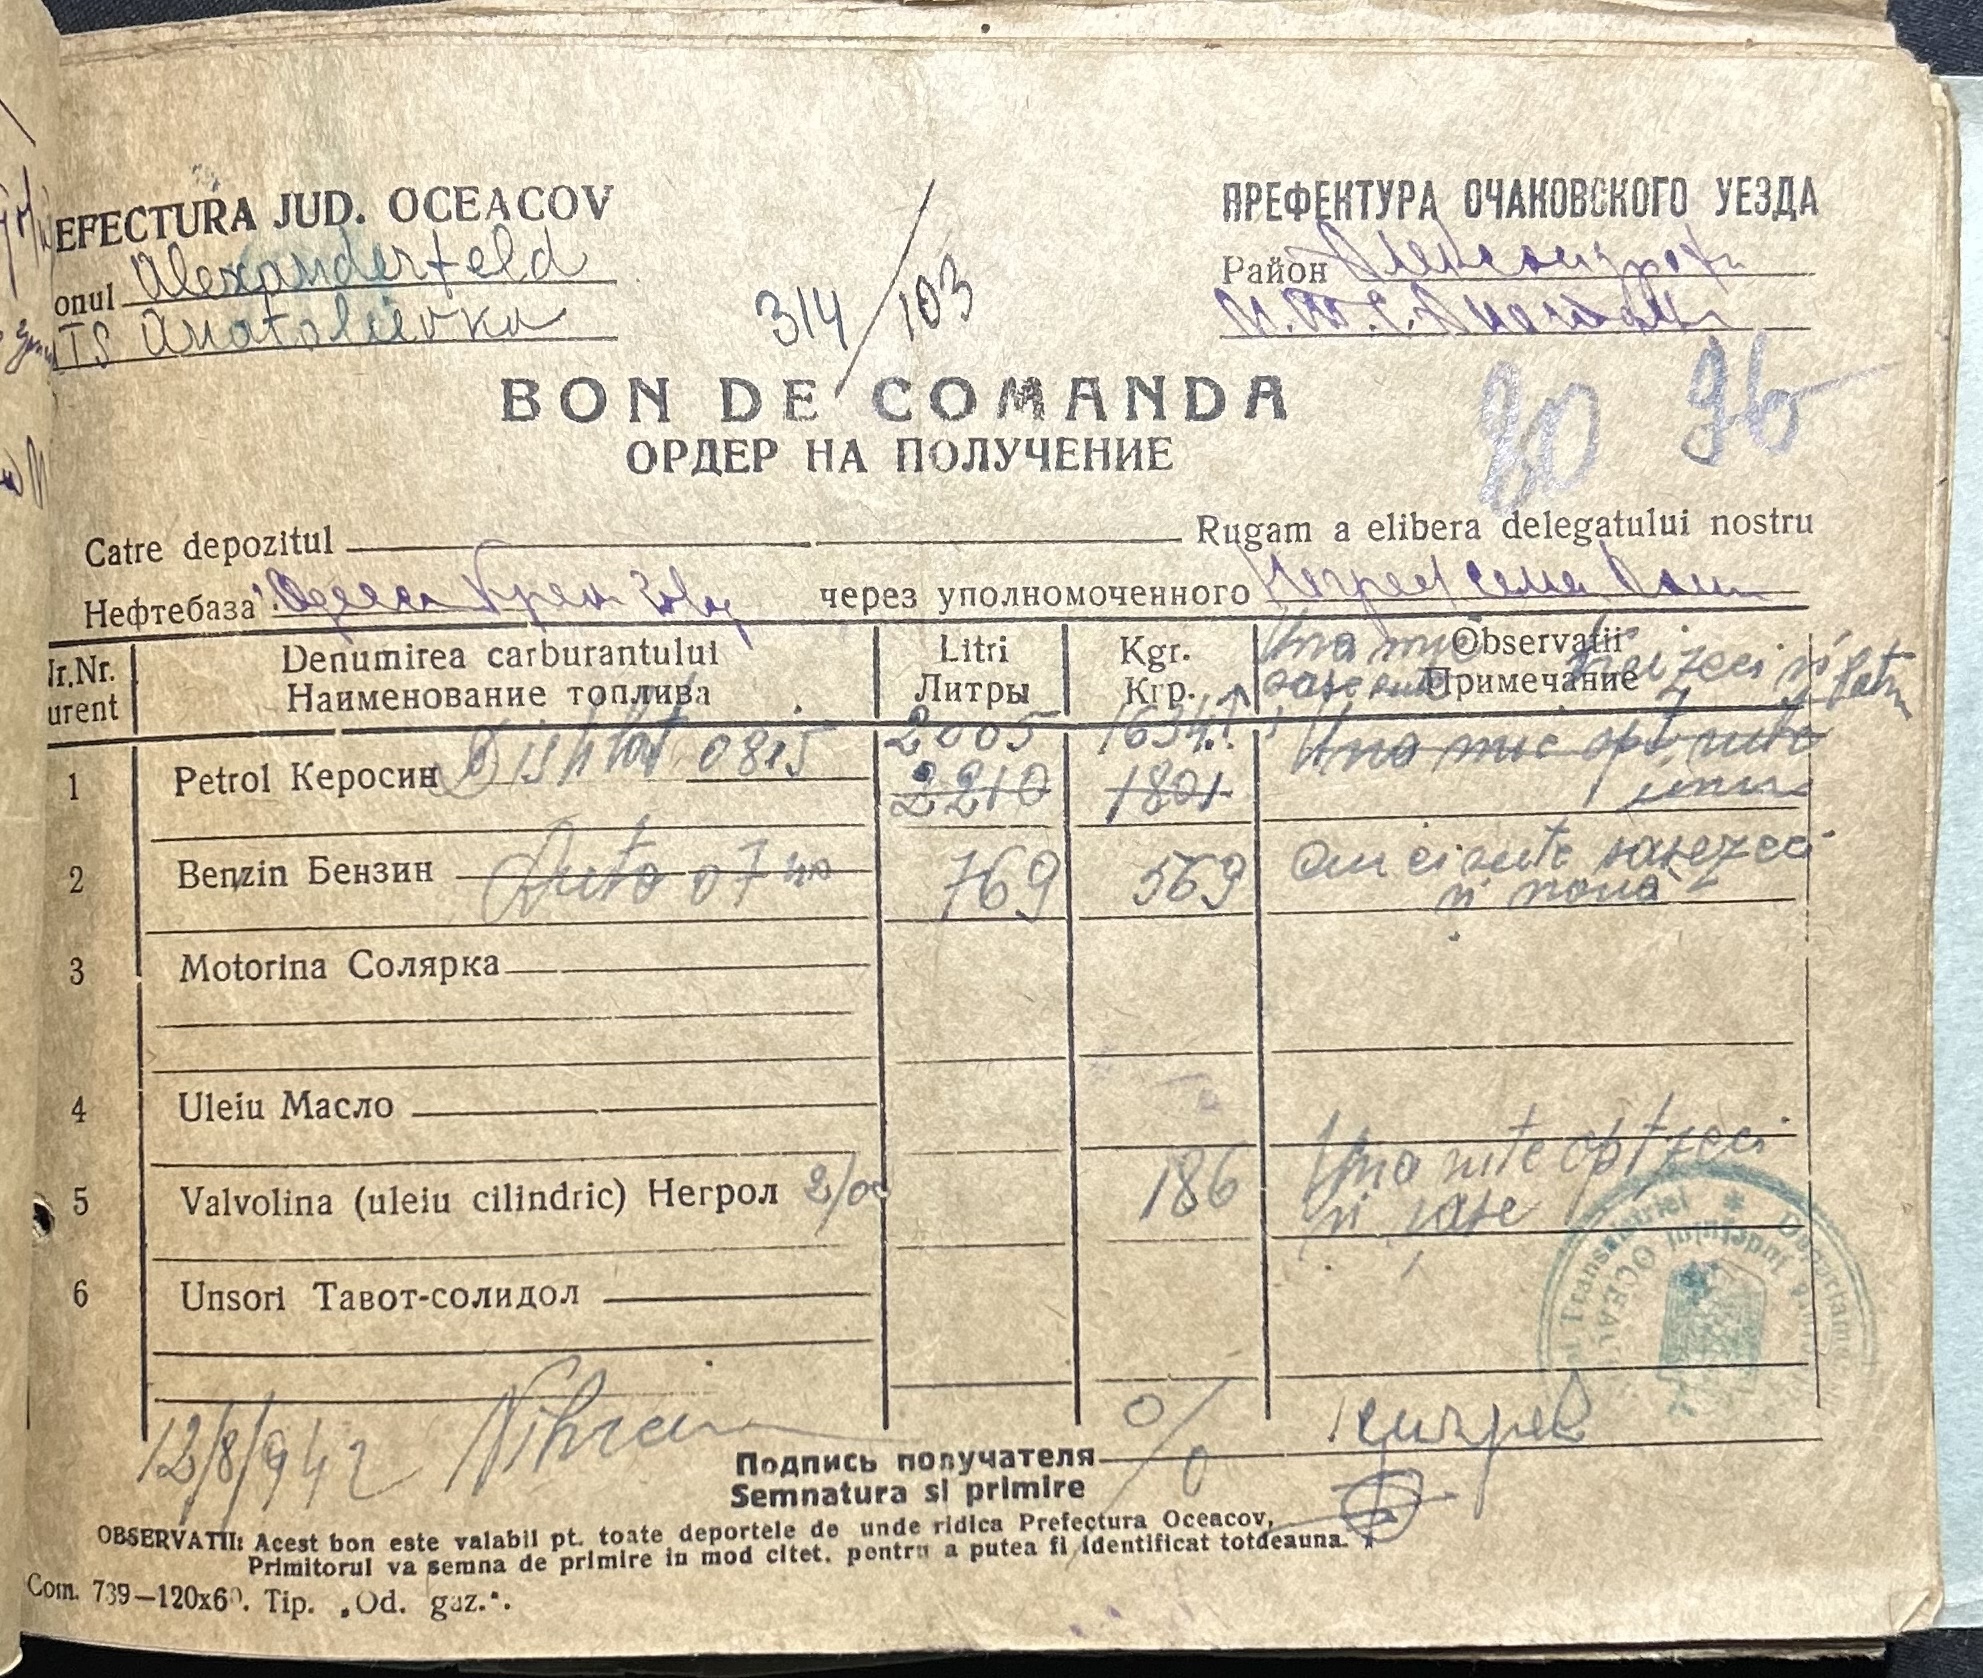 EFECTURA JUD. OCEACOV
ПРЕФЕКТУРА ОЧАКОВСКОГО УЕЗДА
onul Alexanderfeld
Район
TS Anatolievka
М.Т.С.
314/103
BON DE COMANDA
ОРДЕР НА ПОЛУЧЕНИЕ
90 96
Catre depozitul Rugam a elibera delegatului nostru
Нефтебаза Одесса через уполномоченного
Nr.Nr. urent
Denumirea carburantului
Наименование топлива
Litri
Литры
Kgr.
Кгр.
Observatii
Примечание
Una mie sase sute trei zeci si patru
1 Petrol Керосин Distilat 0815 2005 1634
2210 1801 Una mie opt sute unu
2 Benzin Бензин Auto 0740 769 569 cinci sute sasezeci si noua
3 Motorina Солярка
4 Uleiu Масло
5 Valvolina (uleiu cilindric) Негрол 2/00 186 Una sute optzeci si sase
6 Unsori Тавот-солидол
Transnistriei * Departament
Judetului OCEACOV
12/8/942
Подпись получателя
Semnatura si primire
OBSERVATII: Acest bon este valabil pt. toate deportele de unde ridica Prefectura Oceacov,
Primitorul va semna de primire in mod citet, pentru a putea fi identificat totdeauna.
Com. 739—120x60. Tip. „Od. gaz.“.